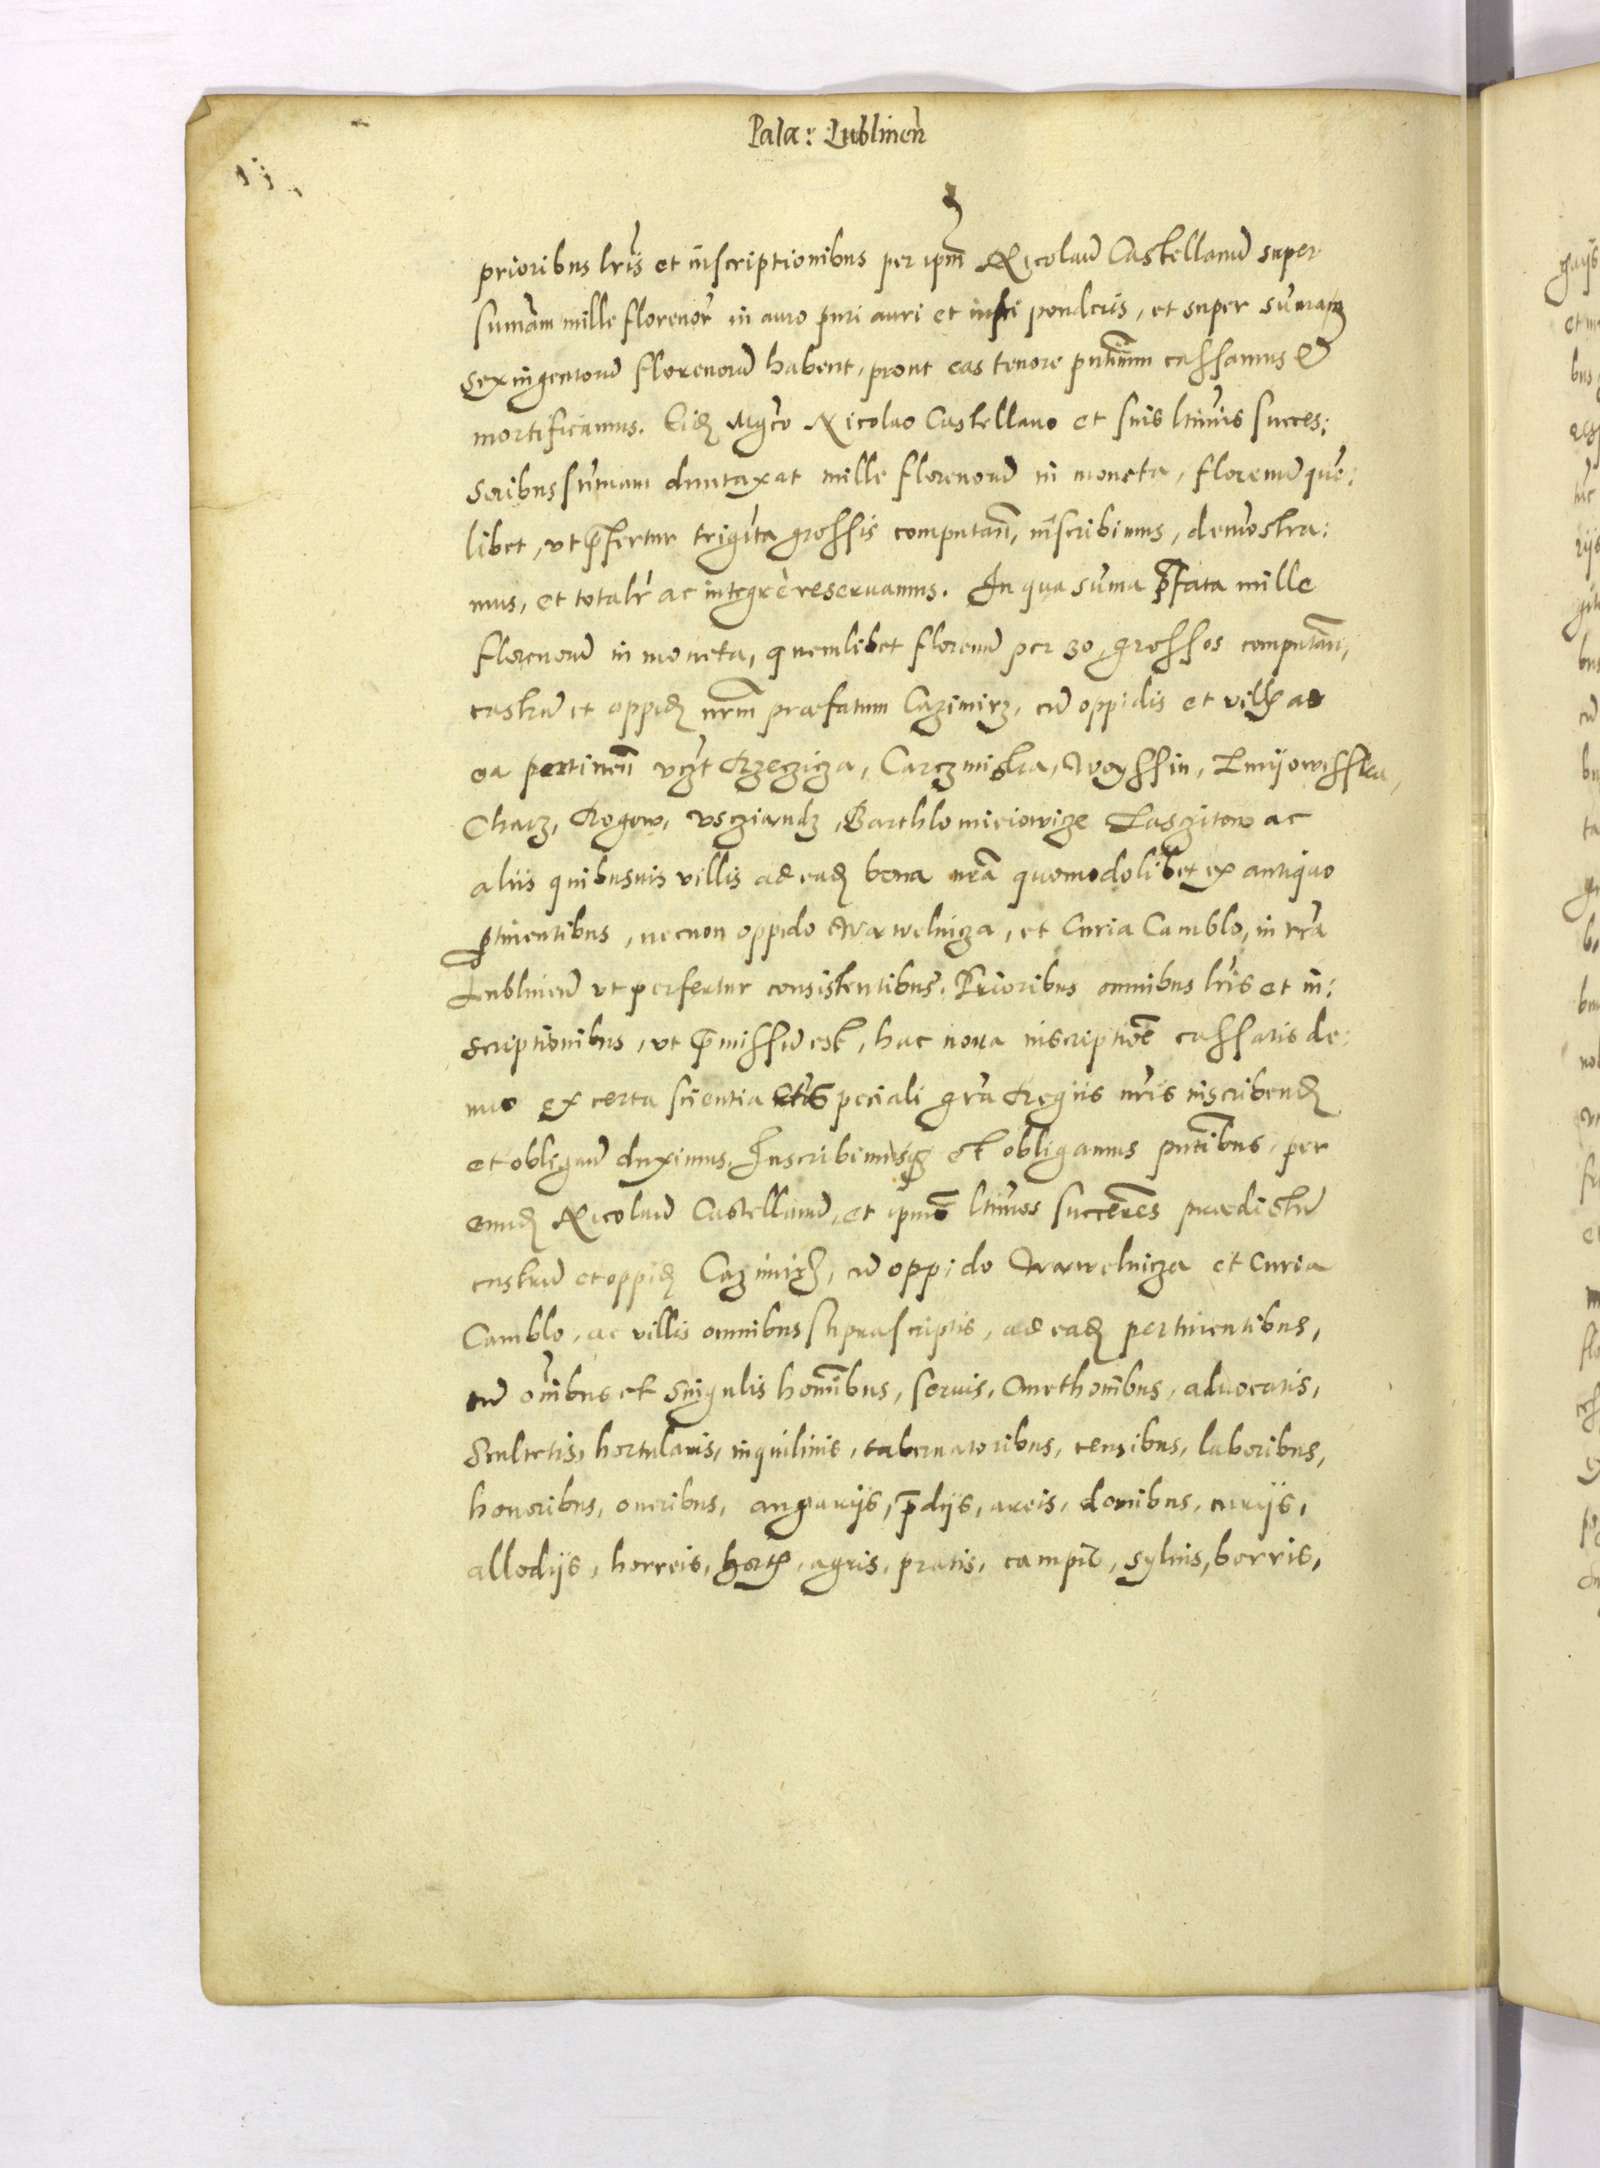 Pala: Lublinen̄
prioribus lr̄is et inscriptionibus per ipm̄ Nicolaū Castellanū super
sum̄am mille florenor̄ in auro puri auri et iusti ponderis, et super sum̄am
sexingentorū florenorū habent, prout eas tenore pn̄tium cassamus &
mortificamus. Eid Mgco Nicolao Castellano et suis ltimis succes:
soribus sum̄am duntaxat mille florenorū in moneta, florenū que:
libet, vt p̄fertur trigīta grossis computan̄, inscribimus, demōstra:
mus, et totalr̄ ac integrè reseruamus. In qua sum̄a p̄fata mille
florenorū in moneta, quemlibet florenū per 30 grossos computan̄,
castrū et oppid nrm̄ praefatum Cazimirz, cū oppidis et villis ad
ea pertinen̄ vczt Rzeczicza, Carczmiska, Woyssin,
Charz, Rogow, Vscziandz, Barthlomieiowicze Lasziton ac
aliis quibusuis villis ad ead bona nr̄a quomodolibet ex antiquo
ptinentibus, necnon oppido Wawelnicza, et Curia Camblo, in tr̄a
Lublinen̄ vt perfertur consistentibus. Prioribus omnibus lr̄is et in:
scriptionibus, vt p̄missū est, hac noua inscriptiōe cassatis de:
nuo ex certa scientia et speciali gr̄a Regiis nr̄is inscribend
et obligand duximus. Inscribimusq et obligamus pn̄tibus, per
eund Nicolaū Castellanū, et ipius ltimos succēres praedictū
castrū et oppid Cazimirz, cū oppido Wawelnicza et Curia
Camblo, ac villis omnibus suprascriptis, ad ead pertinentibus,
cū om̄ibus et singulis hom̄ibus, seruis, Cmethonibus, aduocatis,
Scultetis, hortulanis, inquilinis, tabernatoribus, censibus, laboribus,
honoribus, oneribus, angarijs, p̄dijs, areis, domibus, curijs,
allodijs, horreis, hortis, agris, pratis, campis, syluis, borris,